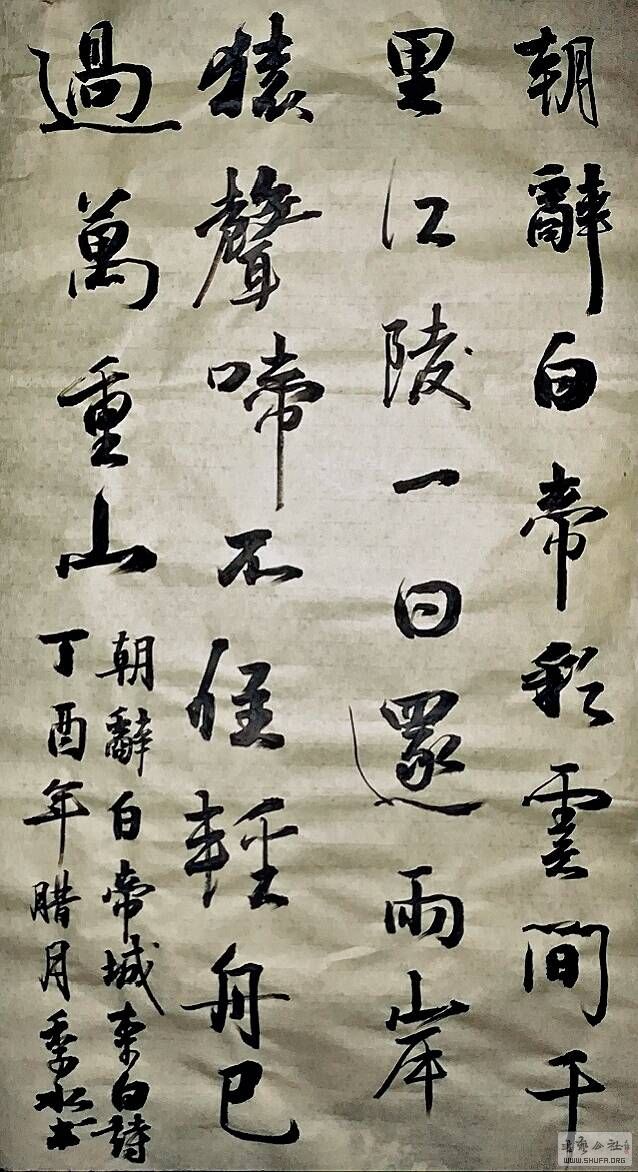 朝辭白帝彩雲間千
里江陵一日還兩岸
猿聲啼不住輕舟已
過萬重山
朝辭白帝城李白詩
丁酉年腊月
WWW.SHUFA.ORG